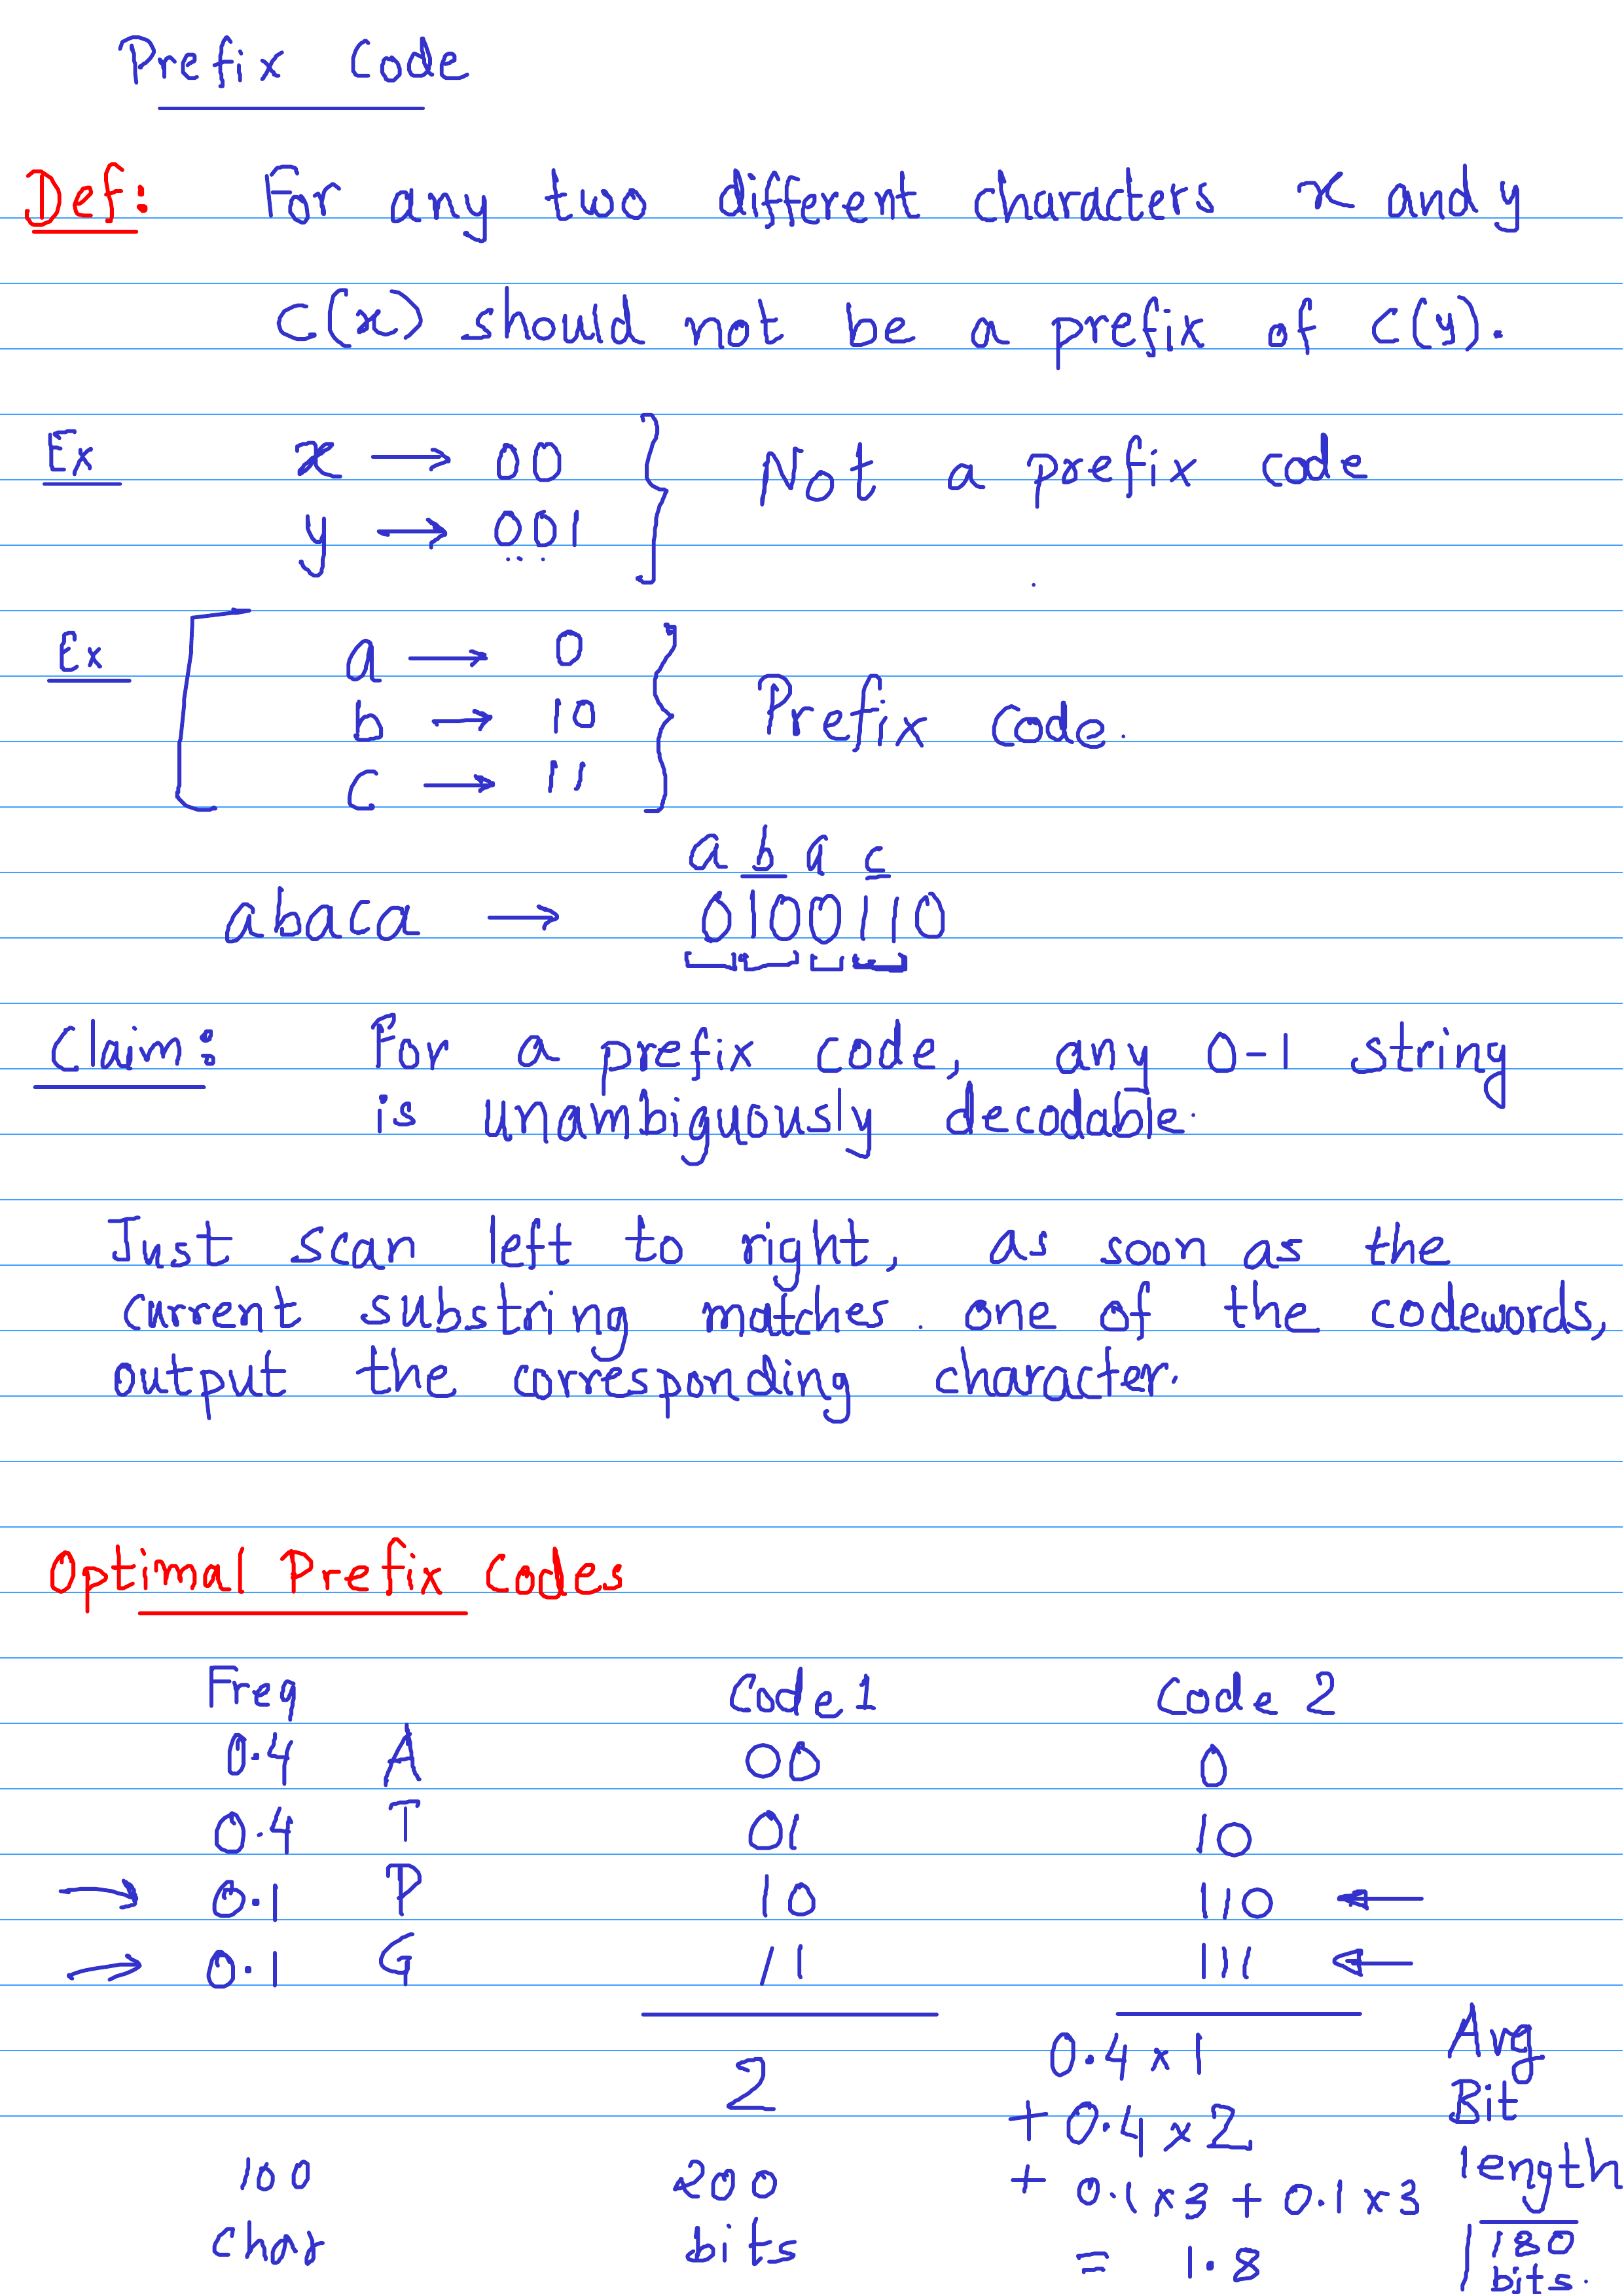 Prefix Code
Def: For any two different characters x and y
C(x) should not be a prefix of C(y).
Ex x → 00
y → 001 } Not a prefix code
Ex [ a → 0
b → 10 } Prefix code.
c → 11
a b a c
abaca → 0100110
Claim: For a prefix code, any 0-1 string
is unambiguously decodable.
Just scan left to right, as soon as the
current substring matches one of the codewords,
output the corresponding character.
Optimal Prefix Codes
Freq Code 1 Code 2
0.4 A 00 0
0.4 T 01 10
→ 0.1 P 10 110 ←
→ 0.1 G 11 111 ←
2 0.4 × 1 Avg
+ 0.4 × 2 Bit
100 200 + 0.1 × 3 + 0.1 × 3 length
char bits = 1.8 180
bits.